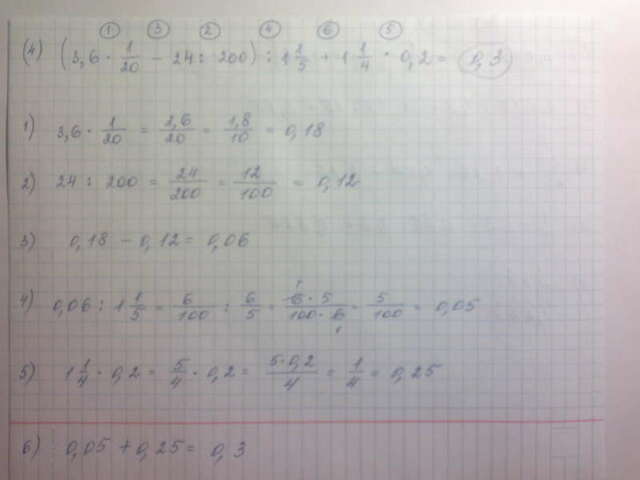 ① ③ ② ④ ⑥ ⑤
(4) (3,6 · 1/20 - 24 : 200) : 1 1/5 + 1 1/4 · 0,2 = 0,3
1) 3,6 · 1/20 = 3,6/20 = 1,8/10 = 0,18
2) 24 : 200 = 24/200 = 12/100 = 0,12
3) 0,18 - 0,12 = 0,06
4) 0,06 : 1 1/5 = 6/100 : 6/5 = 6 · 5/100 · 6 = 5/100 = 0,05
5) 1 1/4 · 0,2 = 5/4 · 0,2 = 5·0,2/4 = 1/4 = 0,25
6) 0,05 + 0,25 = 0,3